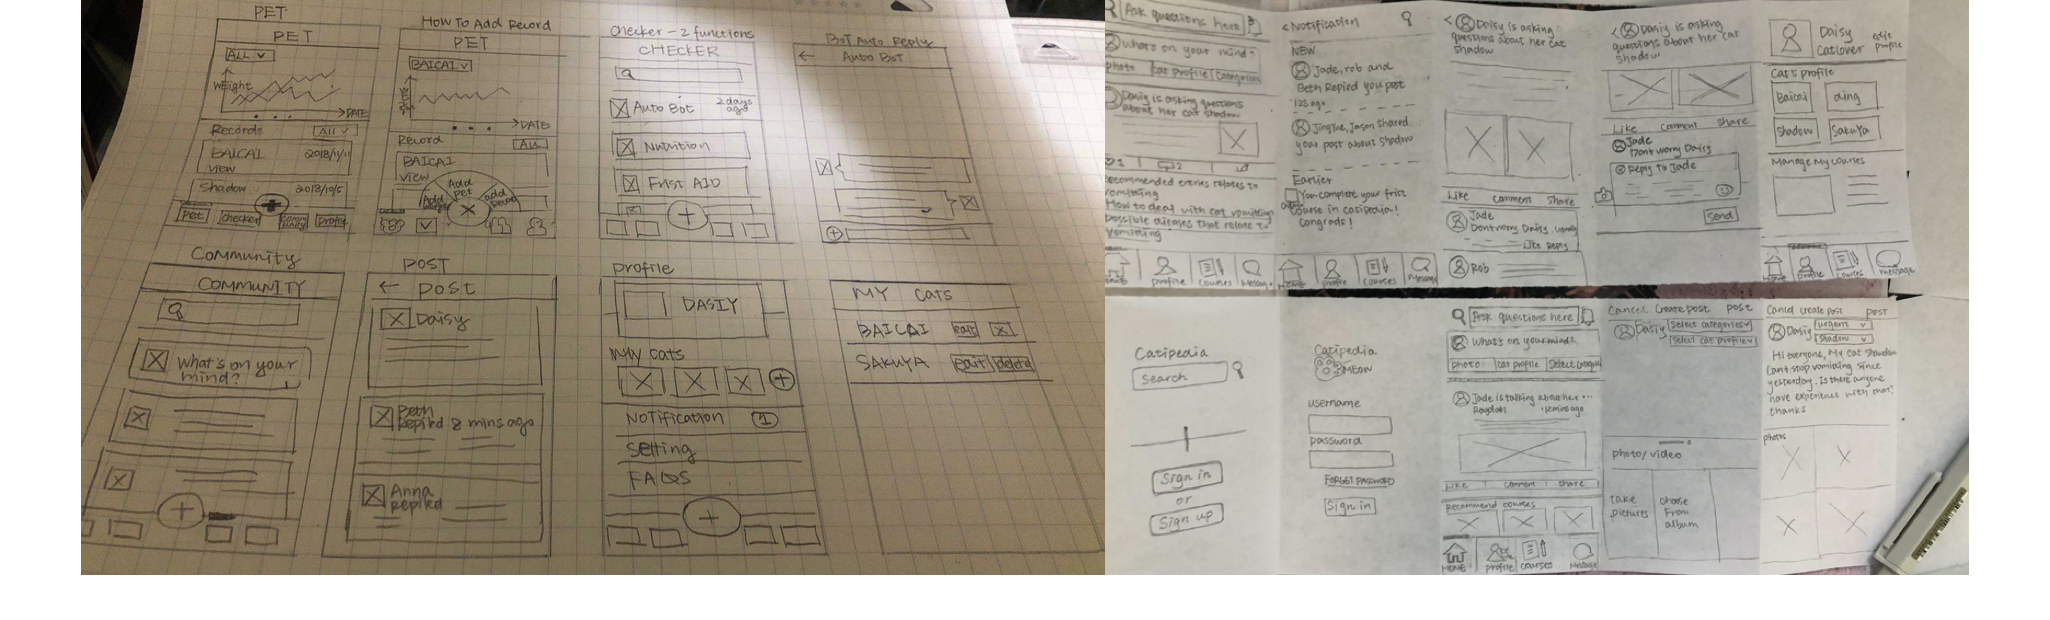 PET
PET
ALL
Weight
DATE
Records
All
BAICAI 2018/11/11
View
Shadow 2018/10/5
Pet
checker
Profile
How To Add Record
PET
BAICAI
DATE
Record
ALL
BAICAI
View
Add
Add pet
add Record
Checker - 2 functions
CHECKER
Auto Bot 2 days ago
Nutrition
Frist AID
Bot Auto Reply
Auto Bot
Community
COMMUNITY
What's on your
mind?
POST
post
Daisy
Beth
Replied 8 mins ago
Anna
Replied
profile
DASIY
My cats
Notification 1
Setting
FAQS
MY CATS
BAICAI edit X
SAKUYA edit delete
Ask questions here
What's on your mind?
photo cat profile Categories
Daisy is asking questions
about her cat shadow
2
Recommended entries relates to
vomiting
How to deal with cat vomiting
possible diseases that relate to
vomiting
profile courses Message
< Notification
NEW
Jade, rob and
Beth Replied you post
12s ago
JingYue, Jason shared
your post about Shadow
Earlier
You complete your frist
course in catipedia!
Congrads!
HOME profile courses Message
< Daisy is asking
questions about her cat
shadow
Like comment share
Jade
Dont worry Daisy,
Like Reply
Rob
< Dasiy is asking
questions about her cat
shadow
Like comment share
Jade
Dont worry Daisy
Reply to Jade
Send
Daisy
Catlover
edit
profile
Cat's profile
Baicai ding
Shadow Sakuya
Manage My courses
Home profile courses message
Catipedia
Search
Sign in
or
Sign up
Catipedia
MEOW
username
password
FORGET PASSWORD
Sign in
Ask questions here
What's on your mind?
photo cat profile Select
Jade is talking about her ...
Ragdoll 12mins ago
Like comment share
Recommend courses
HOME profile courses Message
Cancel Create post post
Dasiy Select categories
Select cat profile
photo/video
take
pictures
choose
From
album
Cancel create post post
Dasiy urgent
Shadow
Hi everyone, My cat Shadow
cant stop vomiting since
yesterday. Is there anyone
have experience with that?
thanks
photos